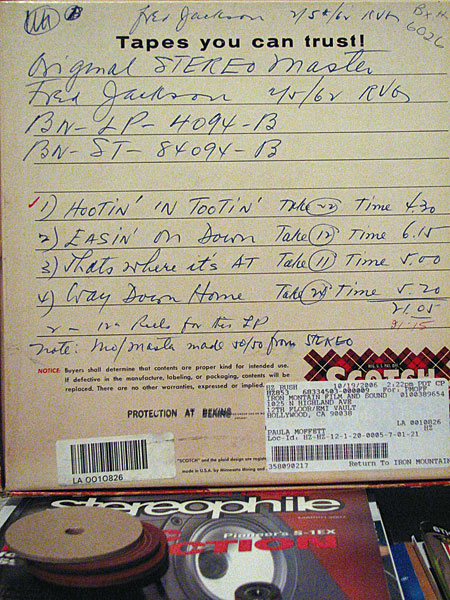 Fred Jackson 2/5/62 RVG
Bx #
6026
Tapes you can trust!
Original STEREO Master
Fred Jackson 2/5/62 RVG
BN-LP-4094-B
BN-ST-84094-B
1) HOOTIN' 'N TOOTIN' Take 22 Time 4.30
2) EASIN' On Down Take 12 Time 6.15
3) Thats where it's AT Take 11 Time 5.00
4) Way Down Home Take Time 5.20
21.05
21:15
2 - 12" Reels for this LP
note: Mo/Master made 50/50 from STEREO
NOTICE Buyers shall determine that contents are proper kind for intended use.
If defective in the manufacture, labeling, or packaging, contents will be
replaced. There are no other warranties, expressed or implied.
SCOTCH
PROTECTION AT BEKINS
HZ RUSH 10/19/2006 2:22pm PDT CP
HZ853 68334501-000009 For: PMOFF
IRON MOUNTAIN FILM AND SOUND 0100389654
1025 N HIGHLAND AVE
12TH FLOOR/EMI VAULT
HOLLYWOOD, CA 90038
LA 0010826
HZ
PAULA MOFFETT
Loc-Id: HZ-HZ-12-1-20-0005-7-01-21
358090217 Return To IRON MOUNTAIN
LA 0010826
"SCOTCH" and the plaid design are
made in U.S.A. by Minnesota Mining and
stereophile
Pioneer's S-1EX